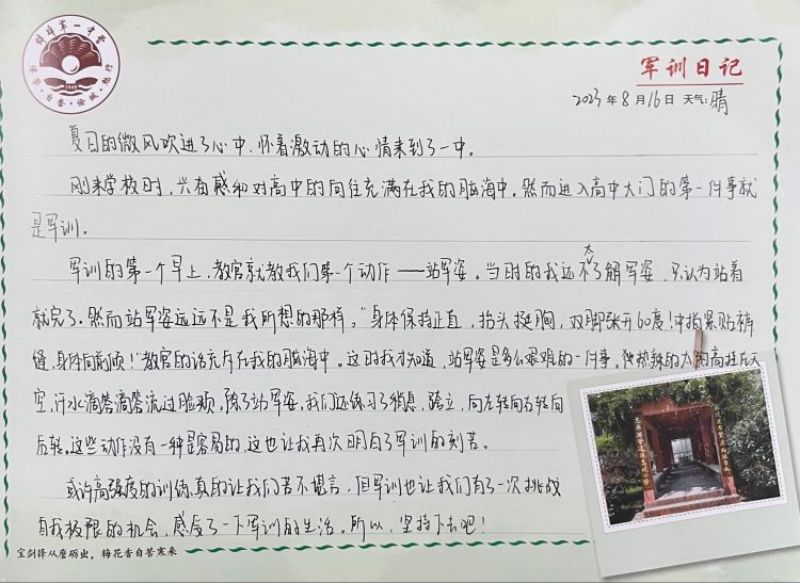 蚌埠第一中学
军训日记
2023年8月16日 天气:晴
夏日的微风吹进了心中,怀着激动的心情来到了一中。
刚来学校时,兴奋感和对高中的向往充满在我的脑海中。然而进入高中大门的第一件事就
是军训。
军训的第一个早上,教官就教我们第一个动作——站军姿。当时的我还不太了解军姿,只认为站着
就完了。然而站军姿远远不是我所想的那样。“身体保持正直,抬头挺胸,双脚张开60度!中指紧贴裤
缝,身体向前倾!”教官的话充斥在我的脑海中。这时我才知道,站军姿是多么艰难的一件事。热辣的太阳高挂在天
空,汗水滴答滴答流过脸颊,除了站军姿,我们还练习了稍息,跨立,向左转向右转向
后转。这些动作没有一种是容易的。这也让我再次明白了军训的刻苦。
或许高强度的训练真的让我们苦不堪言,但军训也让我们有了一次挑战
自我极限的机会,感受了一下军训的生活。所以,坚持下去吧!
宝剑锋从磨砺出,梅花香自苦寒来